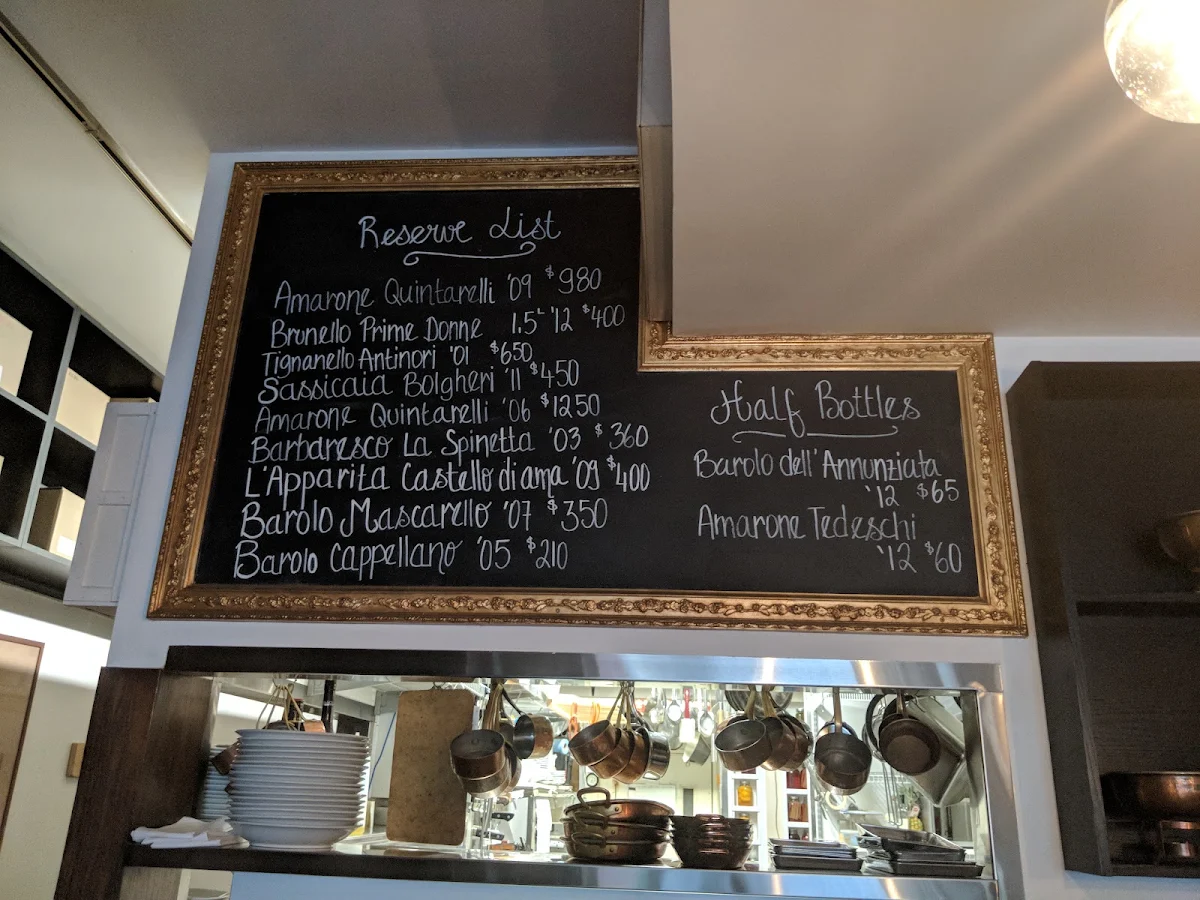 Reserve List
Amarone Quintarelli '09 $980
Brunello Prime Donne 1.5L '12 $400
Tignanello Antinori '01 $650
Sassicaia Bolgheri '11 $450
Amarone Quintarelli '06 $1250
Barbaresco La Spinetta '03 $360
L'Apparita Castello di ama '09 $400
Barolo Mascarello '07 $350
Barolo Cappellano '05 $210
Half Bottles
Barolo dell'Annunziata
'12 $65
Amarone Tedeschi
'12 $60